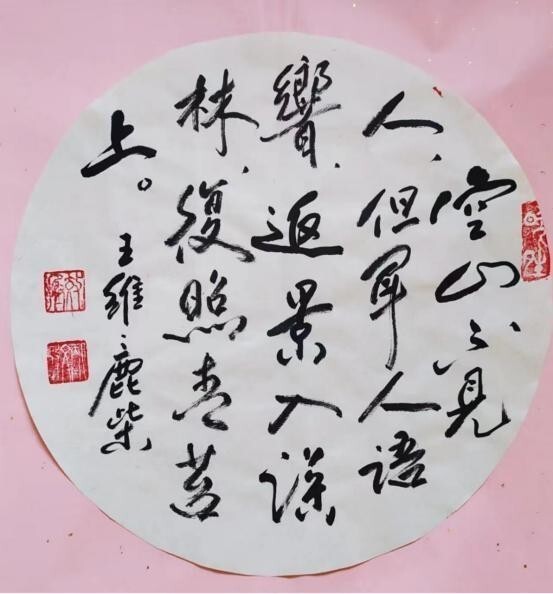 空山不見
人，但聞人語
響，返景入深
林，復照青苔
上。
王維、鹿柴